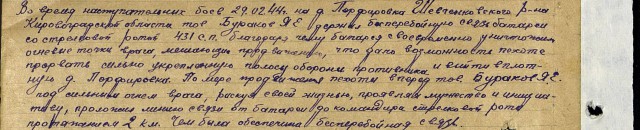 Во время наступательных боев 29.02.44г. на д. Порфировка Шевченковского р-на
Кировоградской области тов. Бураков Я.Е. держал бесперебойную связь батареи
со стрелковой ротой 431 с.п. благодаря чему батарея своевременно уничтожала
огневые точки врага мешающие продвижению, что дало возможность пехоте
прорвать сильно укрепленную полосу обороны противника и выйти вплот-
ную д. Порфировка. По мере продвижения пехоты вперед тов. Бураков Я.Е.
под сильным огнем врага, рискуя своей жизнью, проявляя мужество и инициа-
тиву, проложил линию связи от батареи до командира стрелковой роты
протяжением 2 км. Чем была обеспечена бесперебойная связь.